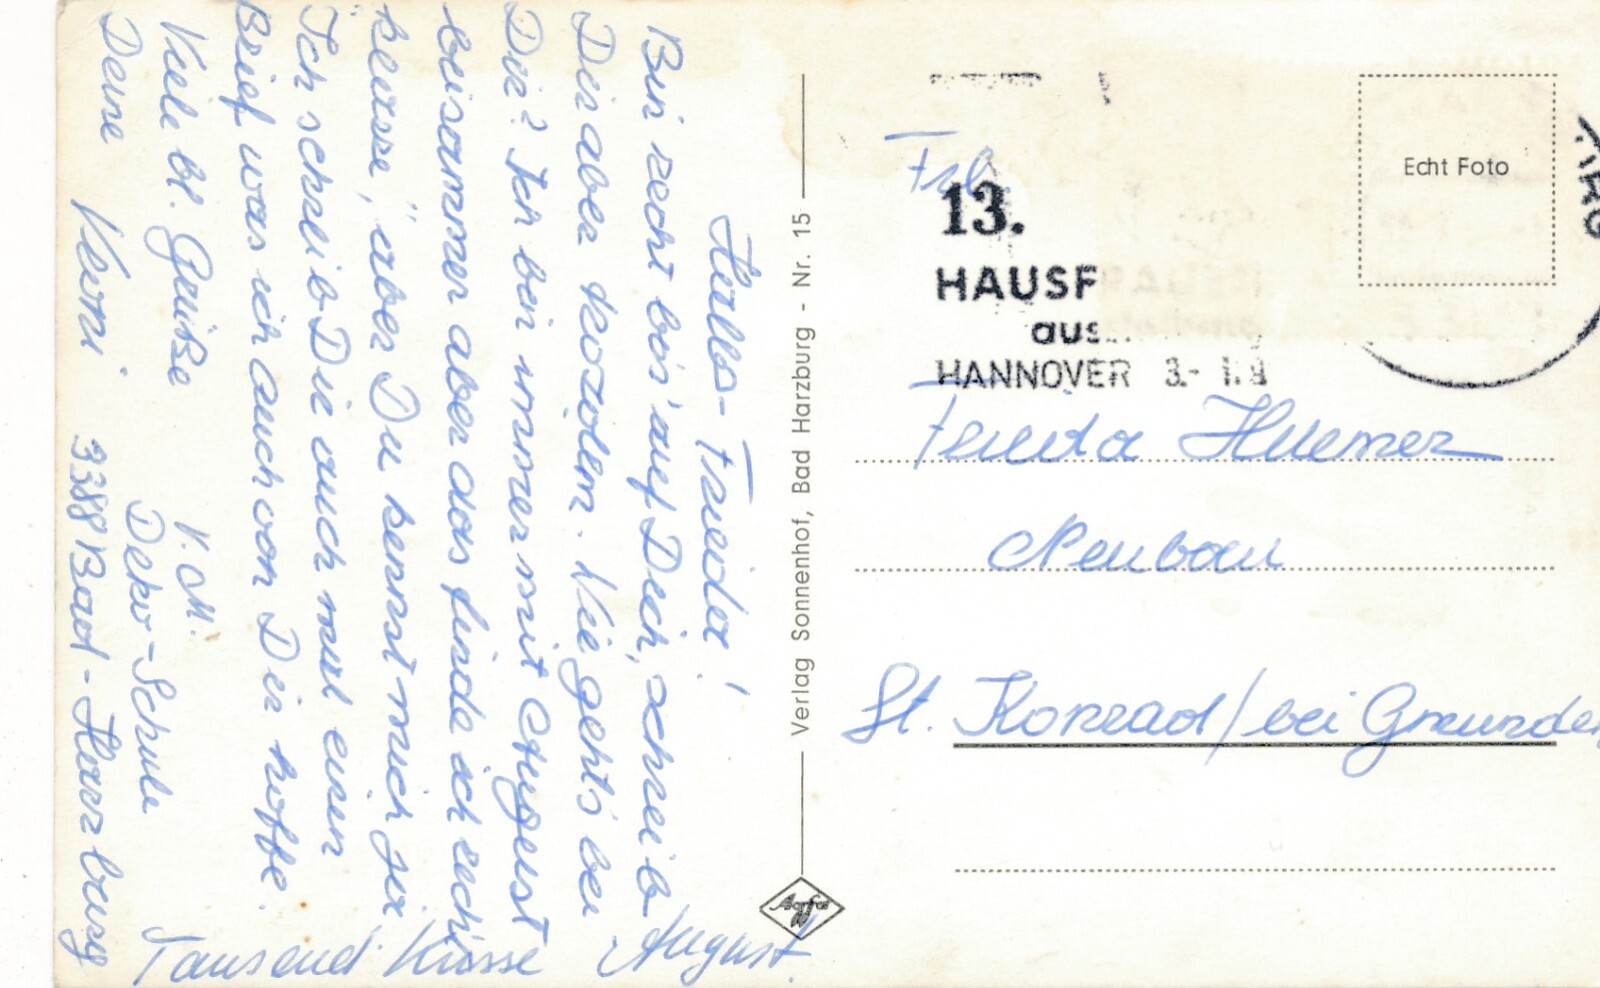 Hallo-Frieda!
Bin recht bös' auf Dich, schreib
Dir aber trotzdem. Wie geht's bei
Dir? Ich bin immer mit August
beisammen aber das finde ich recht
"aber Du kennst mich ja
Ich schreib Dir auch mal einen
Brief was ich auch von Dir hoffe.
Viele bl. Grüße
Deine Verni
V. M.
Deko-Schule
3388 Bad-Harzburg
Tausend Küsse August.
Verlag Sonnenhof, Bad Harzburg - Nr. 15
Agfa
Echt Foto
13.
HAUSF
aus
HANNOVER 3.-
Frl.
Frieda Huemer
Neubau
St. Konrad/bei Gmunden